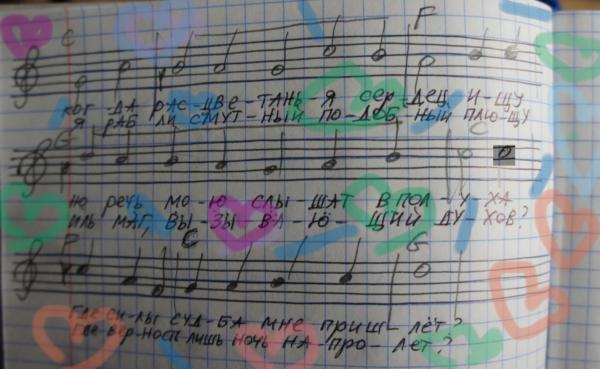 C F
КОГ-ДА РАС-ЦВЕ-ТАНЬ-Я СЕР-ДЕЦ И-ЩУ
Я РАБ ЛИ СМУТ-НЫЙ ПО-ДОБ-НЫЙ ПЛЮ-ЩУ
G C
НО РЕЧЬ МО-Ю СЛЫ-ШАТ В ПОЛ-У-ХА
ИЛЬ МАГ, ВЫ-ЗЫ ВА-Ю-ЩИЙ ДУ-ХОВ?
F C G
ГДЕ СИ-ЛЫ СУД-БА МНЕ ПРИШ-ЛЁТ?
ГДЕ ВЕР-НОСТЬ ЛИШЬ НОЧЬ НА-ПРО-ЛЕТ?